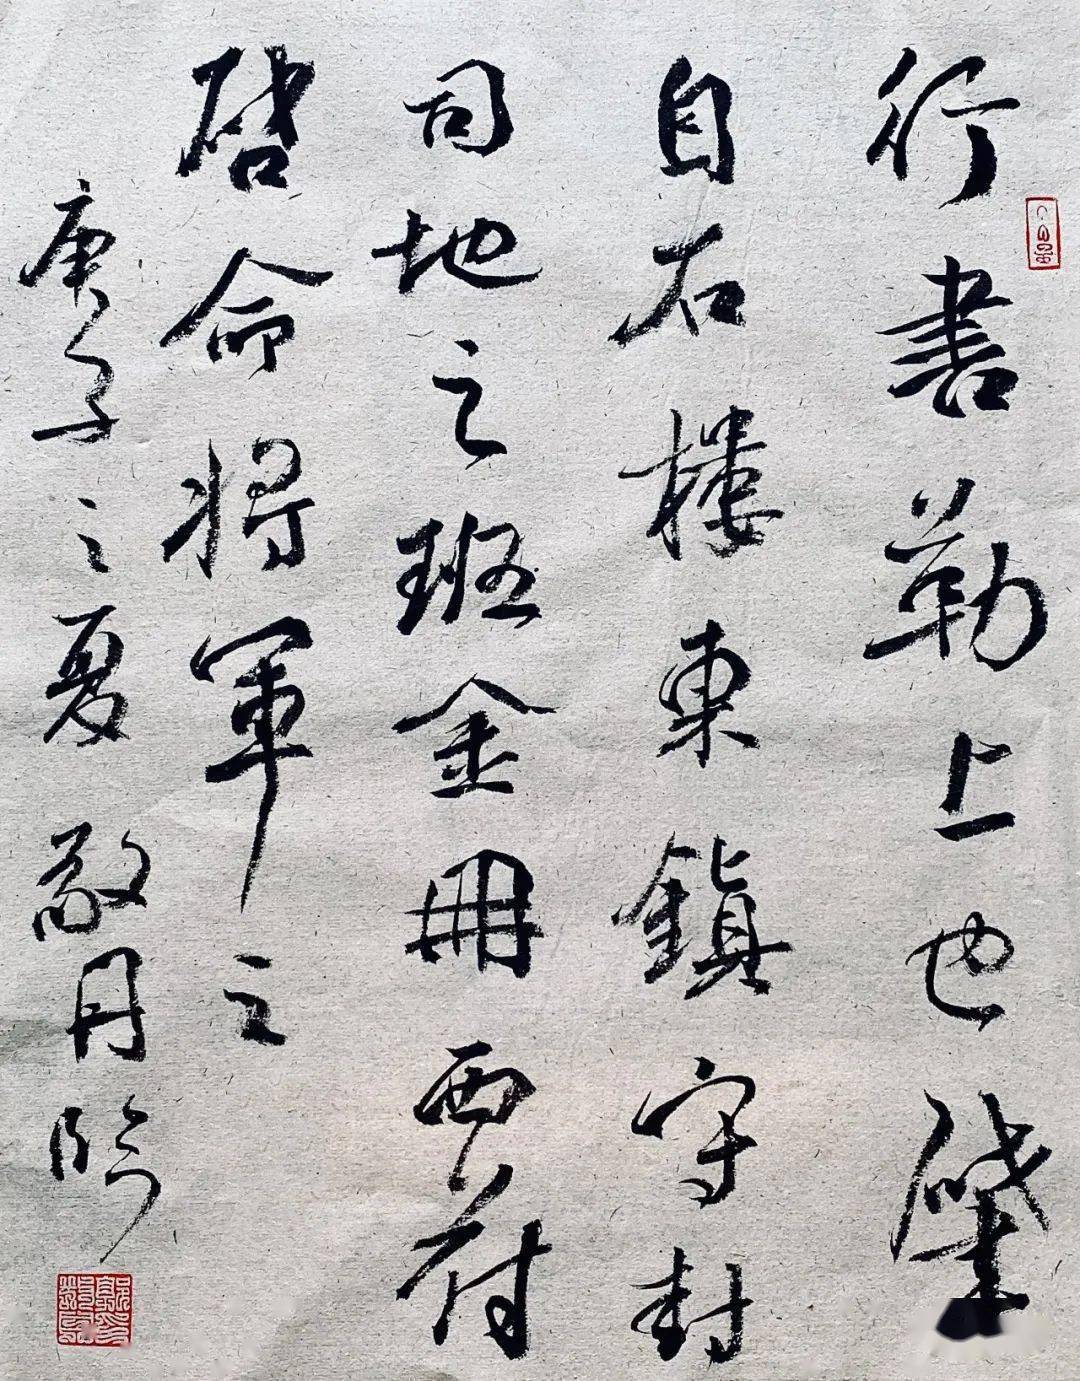 行書勒上也肇
自右樓東鎮守封
司地之班金冊西符
啓命將軍之
庚子之夏 敬丹临